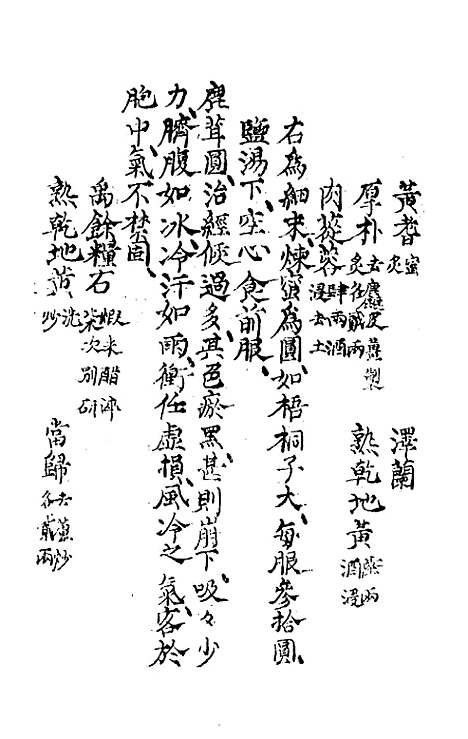 黃耆蜜炙 澤蘭
厚朴去麤皮薑製炙 熟乾地黃酒浸
肉蓯蓉肆兩酒浸去土
右為細末煉蜜為圓如梧桐子大每服參拾圓
鹽湯下空心食前服
鹿茸圓治經候過多其色瘀黑甚則崩下吸々少
力臍腹如冰冷汗如雨衝任虛損風冷之氣客於
胞中氣不禁固
禹餘糧石煅米醋淬柒次別研
熟乾地黃洗炒 當歸去蘆炒各貳兩